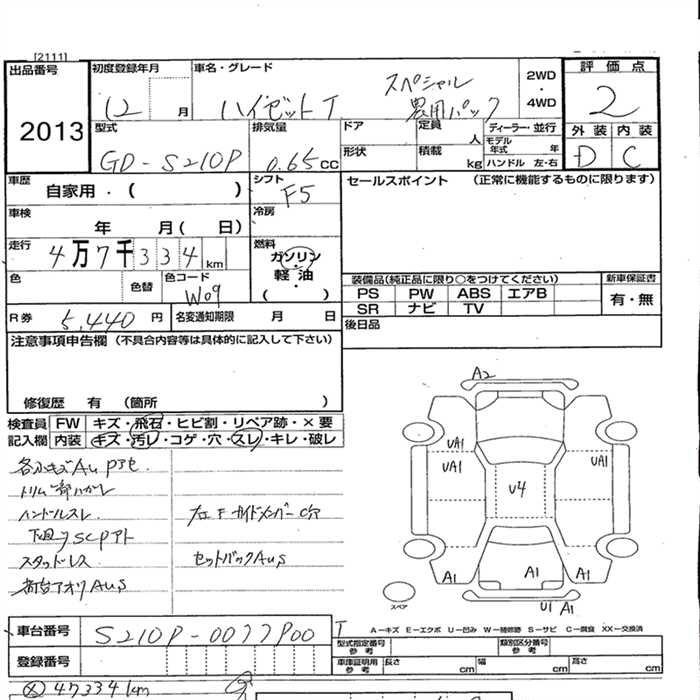 [2111]
出品番号 2013
初度登録年月 12 月
車名・グレード ハイゼットT スペシャル 農用パック
2WD ・ 4WD
評価点 2
外装 D 内装 C
型式 GD-S210P
排気量 0.65 cc
ドア 定員 人
形状 積載 kg
ディーラー・並行
モデル年式 年
ハンドル 左・右
車歴 自家用・( )
シフト F5
セールスポイント (正常に機能するものに限ります)
車検 年 月( 日)
冷房
走行 4万7千334 km
燃料 ガソリン・軽油 ( )
色 色替 色コード W09
装備品(純正品に限り○をつけてください)
PS PW ABS エアB
SR ナビ TV
新車保証書 有・無
R券 5,440 円
名変通知期限 月 日
後日品
注意事項申告欄 (不具合内容等は具体的に記入して下さい)
修復歴 有 (箇所 )
検査員記入欄
FW キズ・飛石・ヒビ割・リペア跡・×要
内装 キズ・汚レ・コゲ・穴・スレ・キレ・破レ
トリム一部ハガレ
ハンドルスレ
下廻りSCPアト
スタッドレス
荷台アオリAUS
左右Fサイドメンバー C穴
セットバックAUS
A2
UA1 UA1
UA1 UA1
U4
A1 A1 A1
U1 A1
スペア
A−キズ E−エクボ U−凹み W−補修跡 S−サビ C−腐食 XX−交換済
車台番号 S210P-0077P00 T
登録番号
型式指定番号 参考
類別区分番号 参考
車庫証明用 参考 長さ cm 幅 cm 高さ cm
47334km